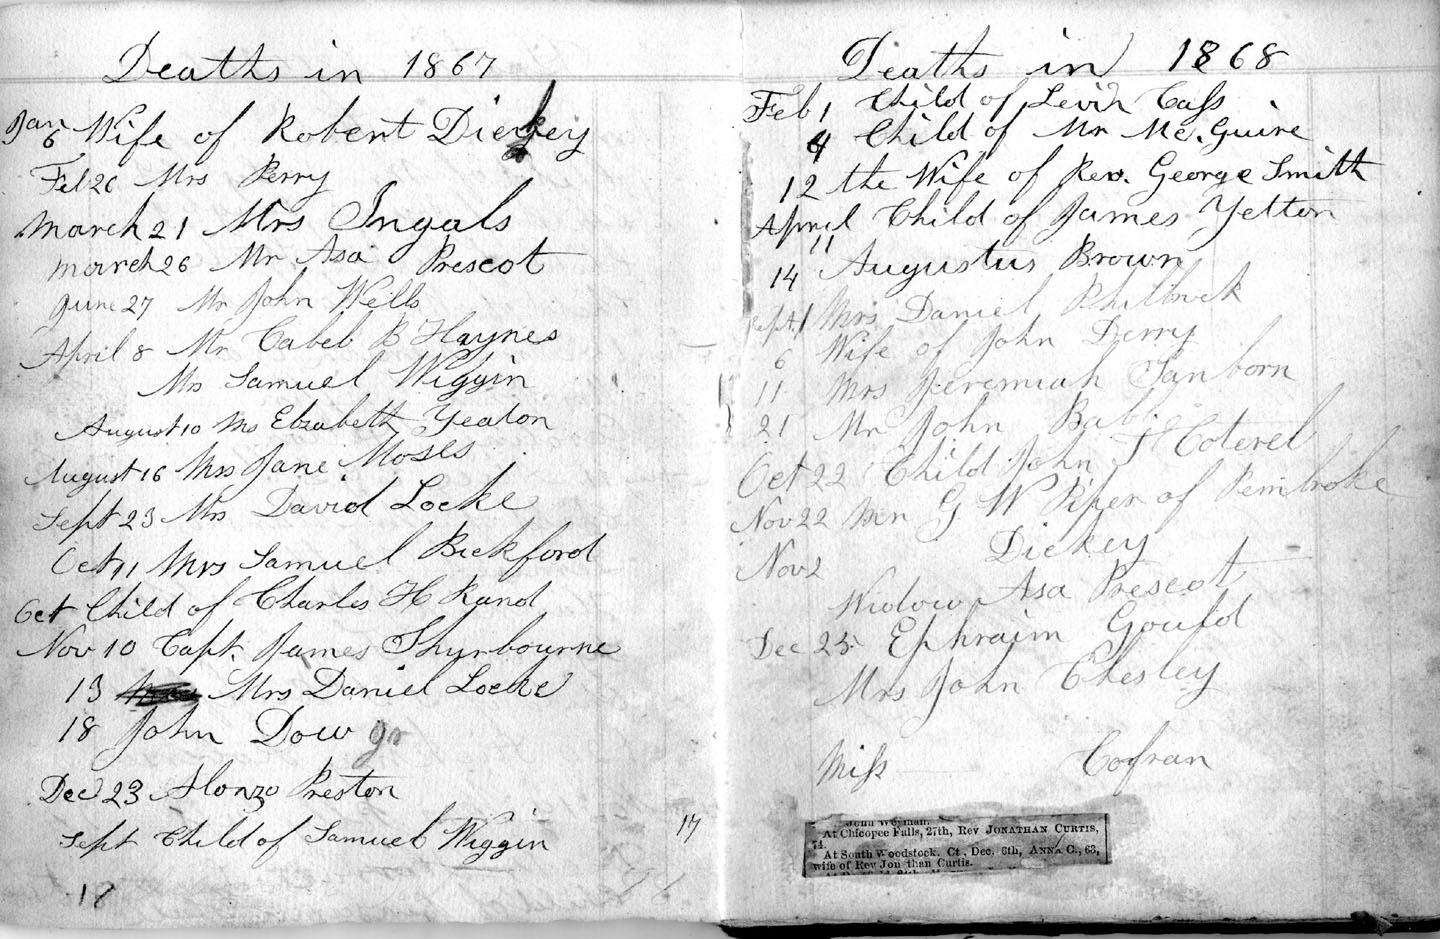 Deaths in 1867
Jan 6 Wife of Robert Dickey
Feb 26 Mrs Perry
March 21 Mrs Ingals
March 26 Mr Asa Prescot
June 27 Mr John Wells
April 8 Mr Cabeb B Haynes
Mrs Samuel Wiggin
August 10 Ms Elzabeth Yeaton
August 16 Mrs Jane Moses
Sept 23 Mrs David Locke
Oct 11 Mrs Samuel Bickford
Oct Child of Charles H Rand
Nov 10 Capt. James Shurbourne
13 Mrs Daniel Locke
18 John Dow Jr
Dec 23 Alonzo Preston
Sept Child of Samuel Wiggin 17
18
Deaths in 1868
Feb 1 Child of Levih Cass
4 Child of Mr Mc. Guire
12 the Wife of Rev. George Smith
April 11 Child of James Yetton
14 Augustus Brown
Sept. 1 Mrs Daniel Philbrick
6 Wife of John Derry
11 Mrs Jeremiah Sanborn
21 Mr John
Oct 22 Child John T Coterel
Nov 22 G W Piper of Pembroke
Nov 2 Dickey
Widow Asa Prescot
Dec 25 Ephraim Gould
Mrs John Chesley
Miss Cofran
John Weyman.
At Chicopee Falls, 27th, Rev JONATHAN CURTIS,
74.
At South Woodstock, Ct, Dec. 6th, ANNA C., 63,
wife of Rev Jonathan Curtis.